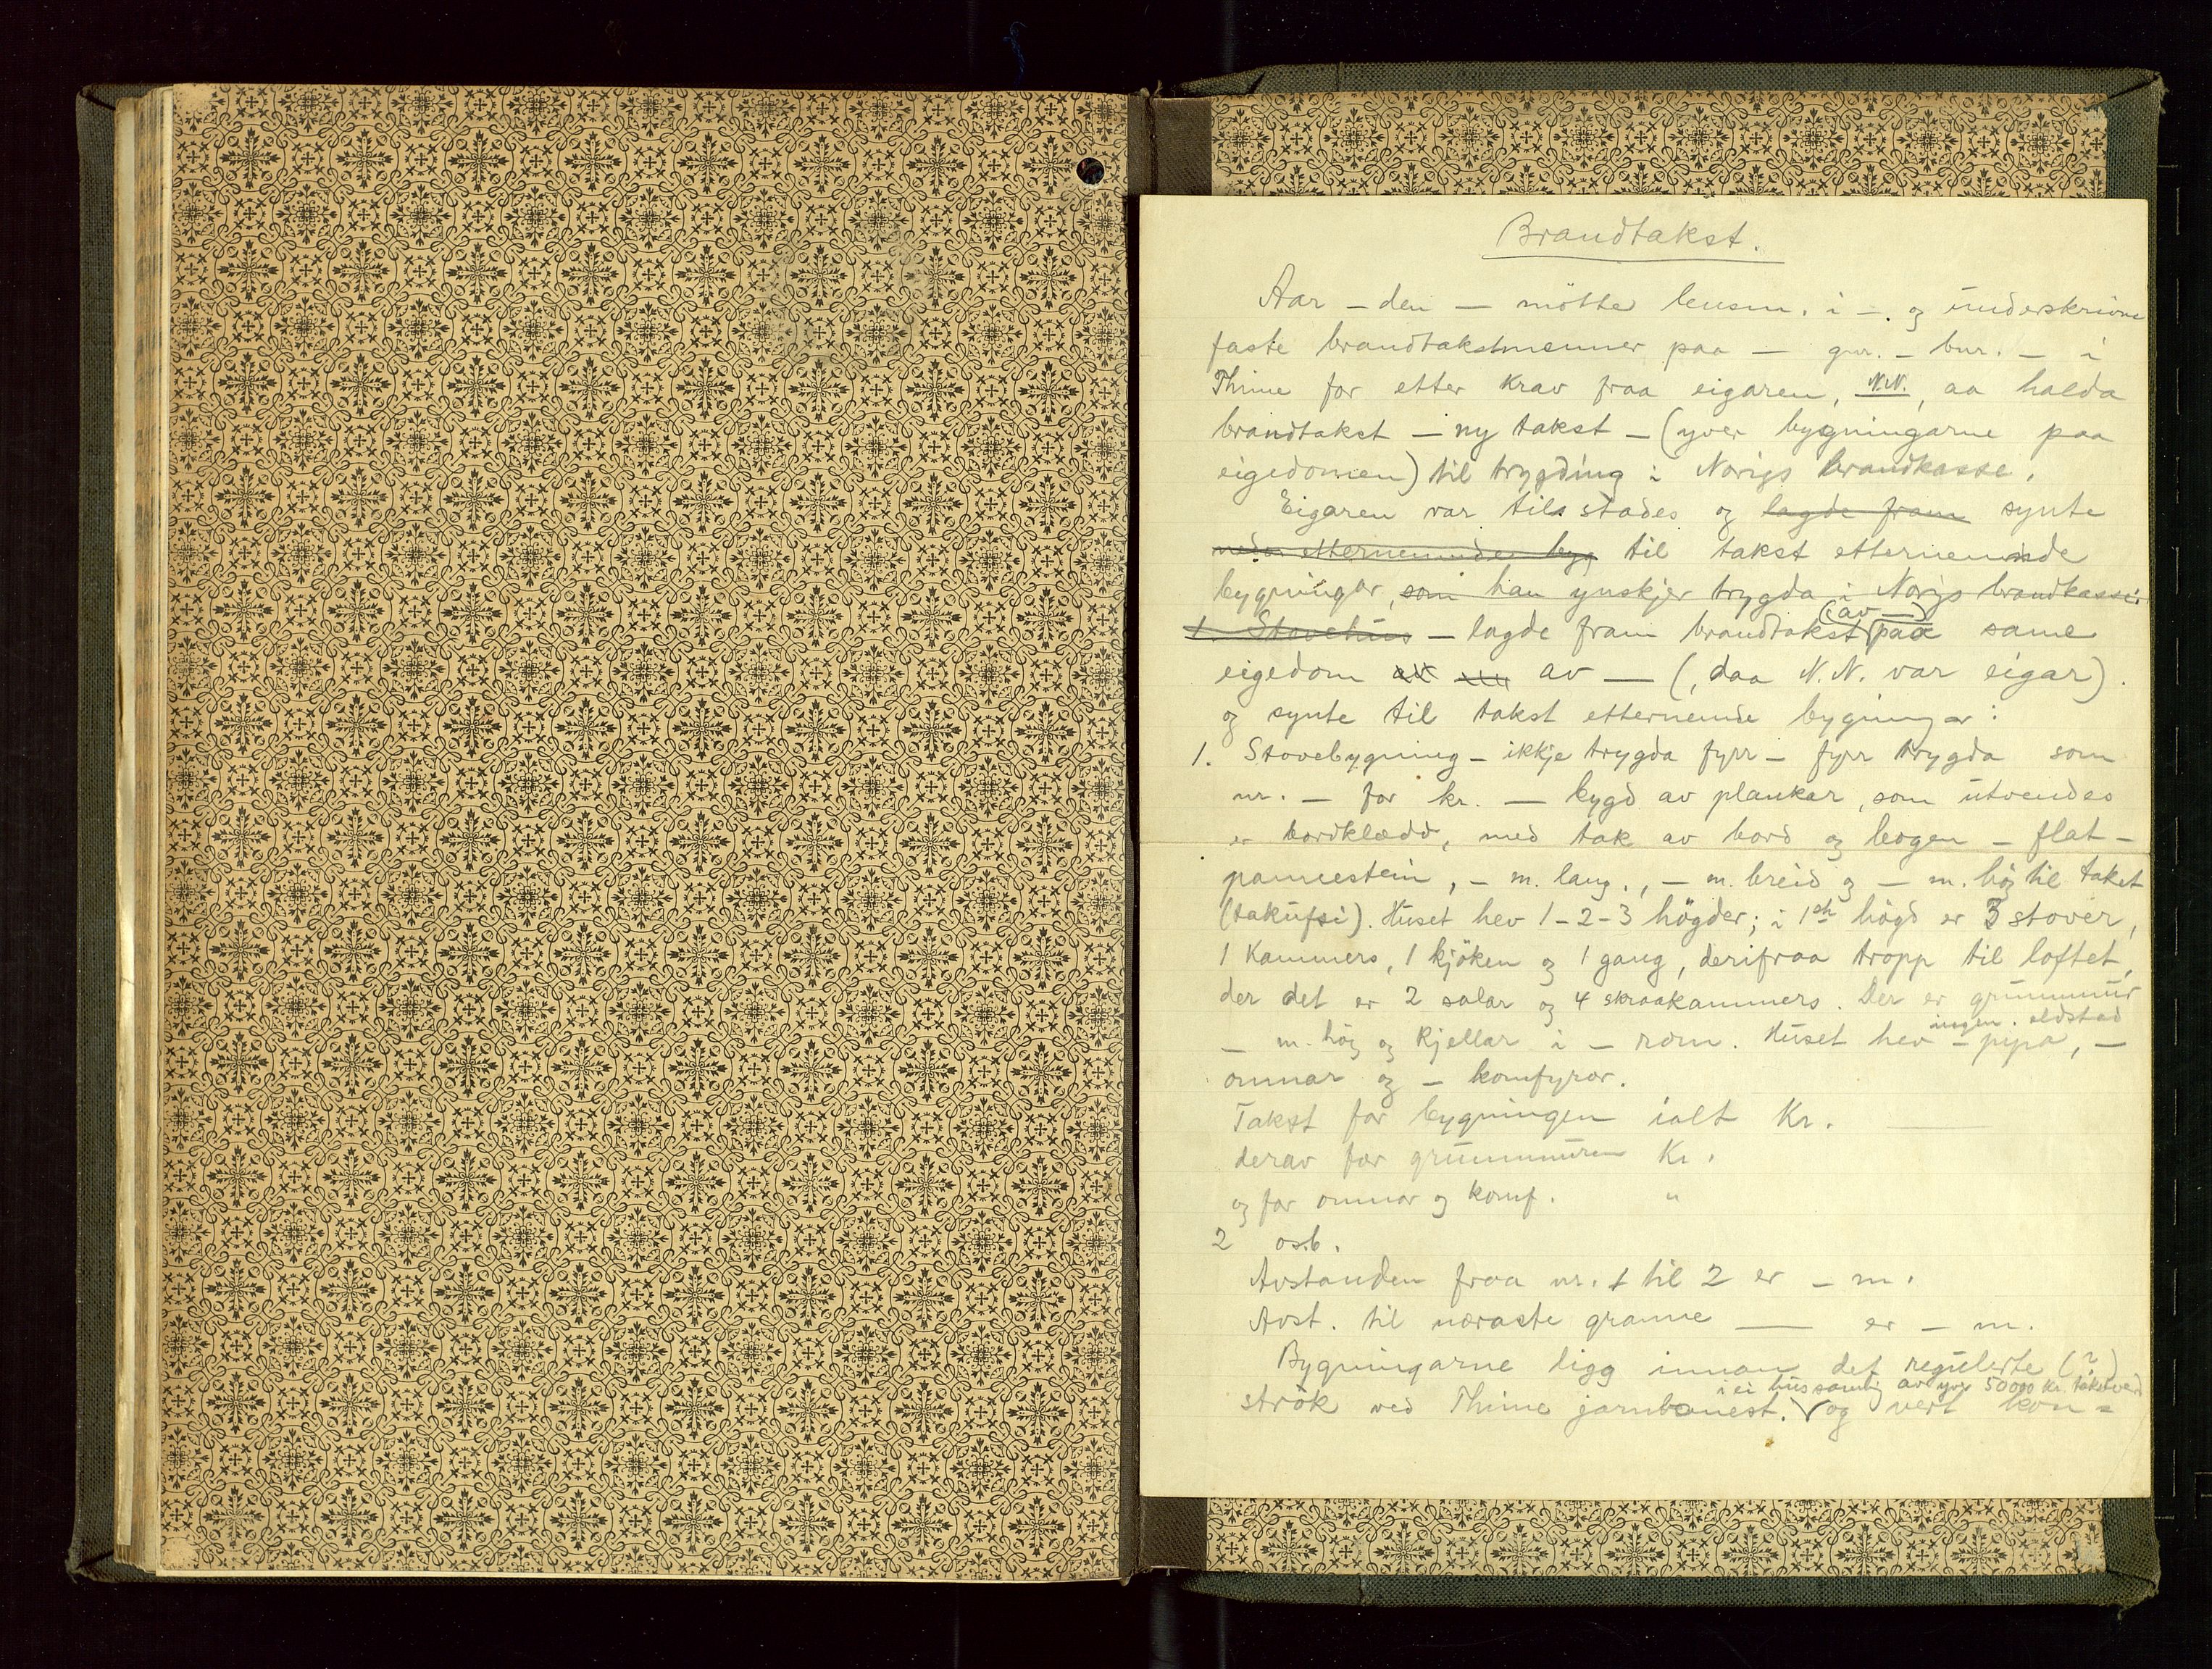 Brandtakst.
Aar – den – mötte lensm. i –. og underskrivne
faste brandtakstmenner paa – gnr. – bnr. – i
Thime for etter krav fraa eigaren, N.N., aa halda
brandtakst – ny takst – (yver bygningarne paa
eigedomen) til trygding i Norigs brandkasse.
Eigaren var tilstades og lagde fram synte
etternemnde byg til takst etternemnde
bygningar, som han ynskjer trygda i Norigs brandkasse:
(av –)
1. Stovehus – lagde fram brandtakst paa same
eigedom av – (, daa N.N. var eigar).
og synte til takst etternemde bygningar:
1. Stovebygning – ikkje trygda fyrr – fyrr trygda som
nr. – for kr. – bygd av plankar, som utvendes
er bordklædd, med tak av bord og – flat –
pannestein, – m. lang., – m. breid og – m. høg til taket
(takufsi). Huset hev 1 – 2 – 3 högder; i 1ste högd er 3 stover,
1 kammers, 1 kjöken og 1 gang, derifraa tropp til loftet,
der det er 2 salar og 4 skraakammers. Der er grunnmur
ingen. eldstad
– m. høg og kjellar i – rom. Huset hev – pipa, –
omnar og – komfyrar.
Takst for bygningen ialt Kr.
derav for grunnmuren Kr.
og for omnar og komf. "
2 osb.
Avstanden fraa nr. 1 til 2 er – m.
Avst. til næraste granne – er – m.
Bygningarne ligg innan det regulerte (?)
i ei hussamling av yver 50000 kr. takstverd
strök ved Thime jarnbanest. og vert kon=